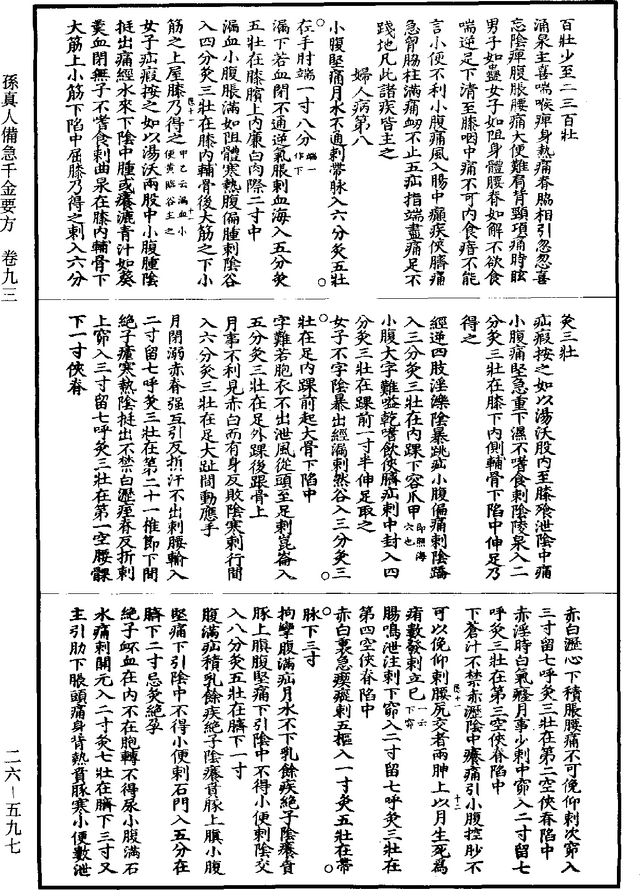 百壯少至二三百壯
涌泉主喜喘喉痺身熱痛脊脇相引忽忽喜
忘陰痺腹脹腰痛大便難肩背頸項痛時眩
男子如蠱女子如阻身體腰脊如解不欲食
喘逆足下清至膝咽中痛不可內食瘖不能
言小便不利小腹痛風入腸中癲疾俠臍痛
急胷脇柱滿痛衂不止五疝指端盡痛足不
踐地凡此諸疾皆主之
婦人病第八
小腹堅痛月水不通刺帶脉入六分灸五壯
在季肋端一寸八分端一作下
漏下若血閉不通逆氣脹刺血海入五分灸
五壯在膝臏上內廉白肉際二寸中
漏血小腹脹滿如阻體寒熱腹偏腫刺陰谷
入四分灸三壯在膝內輔骨後大筋之下小
筋之上屋膝乃得之甲乙云漏血小便黃陰谷主之
女子疝瘕按之如以湯沃兩股中小腹腫陰
挺出痛經水來下陰中腫或癢漉青汁如葵
羹血閉無子不嗜食刺曲泉在膝內輔骨下
大筋上小筋下陷中屈膝乃得之刺入六分
灸三壯
疝瘕按之如以湯沃股內至膝飱泄陰中痛
小腹痛堅急重下濕不嗜食刺陰陵泉入二
分灸三壯在膝下內側輔骨下陷中伸足乃
得之
經逆四肢淫濼陰暴跳疝小腹偏痛刺陰蹻
入三分灸三壯在內踝下容爪甲即照海穴也
小腹大字難嗌乾嗜飲俠臍疝刺中封入四
分灸三壯在踝前一寸半伸足取之
女子不字陰暴出經漏刺然谷入三分灸三
壯在足內踝前起大骨下陷中
字難若胞衣不出泄風從頭至足刺崑崙入
五分灸三壯在足外踝後跟骨上
月事不利見赤白而有身反敗陰寒刺行間
入六分灸三壯在足大趾間動應手
月閉溺赤脊强互引反折汗不出刺腰輸入
二寸留七呼灸三壯在第二十一椎節下間
絕子瘧寒熱陰挺出不禁白瀝痓脊反折刺
上窌入三寸留七呼灸三壯在第一空腰髁
下一寸俠脊
赤白瀝心下積脹腰痛不可俛仰刺次窌入
三寸留七呼灸三壯在第二空俠脊陷中
赤淫時白氣癃月事少刺中窌入二寸留七
呼灸三壯在第三空俠脊陷中
下蒼汁不禁赤瀝陰中癢痛引小腹控䏚不
可以俛仰刺腰尻交者兩胂上以月生死爲
痏數發刺立已一云下窌
腸鳴泄注刺下窌入二寸留七呼灸三壯在
第四空俠脊陷中
赤白裏急瘛瘲刺五樞入一寸灸五壯在帶
脉下三寸
拘攣腹滿疝月水不下乳餘疾絕子陰癢賁
豚上䐜腹堅痛下引陰中不得小便刺陰交
入八分灸五壯在臍下一寸
腹滿疝積乳餘疾絕子陰癢賁豚上䐜小腹
堅痛下引陰中不得小便刺石門入五分在
臍下二寸忌灸絕孕
絕子衃血在內不在胞轉不得尿小腹滿石
水痛刺關元入二寸灸七壯在臍下三寸又
主引肋下脹頭痛身背熱賁豚寒小便數泄
孫真人備急千金要方 卷九三
二六-五九七